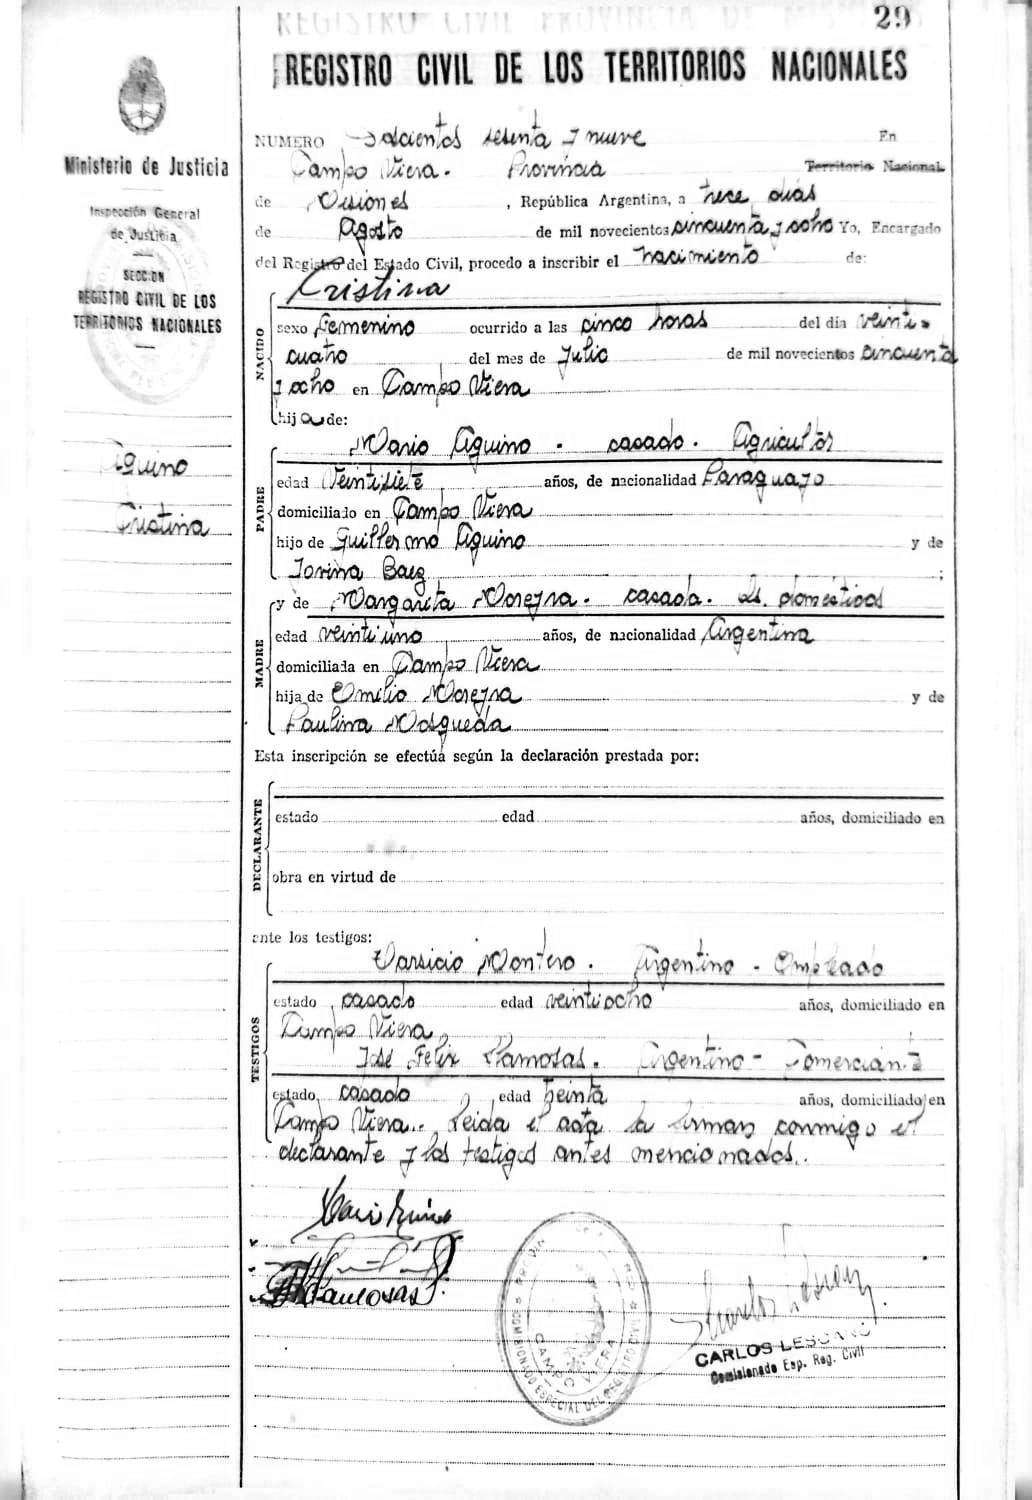 29
REGISTRO CIVIL DE LOS TERRITORIOS NACIONALES
Ministerio de Justicia
Inspección General
de Justicia
SECCION
REGISTRO CIVIL DE LOS
TERRITORIOS NACIONALES
Aquino
Cristina
NUMERO Doscientos sesenta y nueve En
Campo Viera. Provincia Territorio Nacional
de Misiones, República Argentina, a trece dias
de Agosto de mil novecientos cincuenta y ocho Yo, Encargado
del Registro del Estado Civil, procedo a inscribir el nacimiento de:
NACIDO
Cristina
sexo Femenino ocurrido a las cinco horas del día veinti-
cuatro del mes de Julio de mil novecientos cincuenta
y ocho en Campo Viera
hija de:
PADRE
Mario Aquino - casado. Agricultor
edad Veintisiete años, de nacionalidad Paraguayo
domiciliado en Campo Viera
hijo de Guillermo Aquino y de
Baez ;
MADRE
y de Margarita Moreyra. casada. Qs. domésticos
edad veintiuno años, de nacionalidad Argentina
domiciliada en Campo Viera
hija de Emilio Moreyra y de
Paulina Mosqueda
Esta inscripción se efectúa según la declaración prestada por:
DECLARANTE
estado edad años, domiciliado en
obra en virtud de
ante los testigos:
TESTIGOS
Tarsicio Montero. Argentino - Empleado
estado casado edad veintiocho años, domiciliado en
Campo Viera
José Felix Llamosas. Argentino - Comerciante
estado casado edad treinta años, domiciliado en
Campo Viera. Leida el acta la firman conmigo el
declarante y los testigos antes mencionados.
CAMPO VIERA
COMISIONADO ESPECIAL DEL REGISTRO CIVIL
CARLOS LESCANO
Comisionado Esp. Reg. Civil